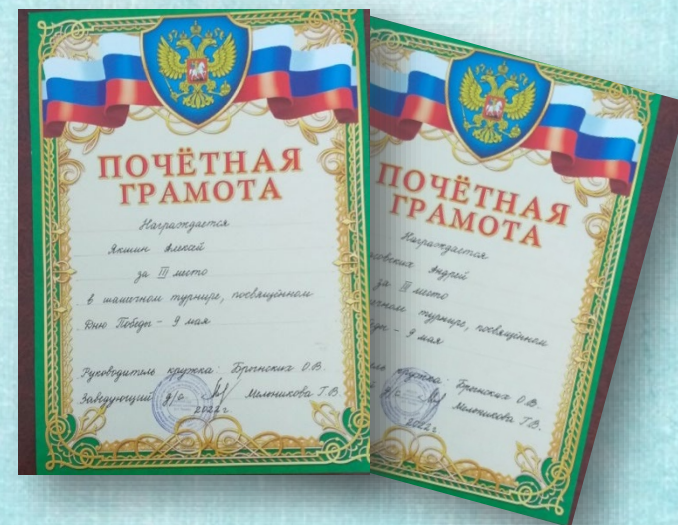 ПОЧЁТНАЯ
ГРАМОТА
Награждается
Якшин Алексей
за III место
в шашечном турнире, посвящённом
Дню Победы - 9 мая
Руководитель кружка: Брынских О.В.
Заведующий д/о Мельникова Т.В.
2022 г
ПОЧЁТНАЯ
ГРАМОТА
Награждается
Андрей
за II место
турнире, посвящённом
- 9 мая
кружка: Брынских О.В.
д/о Мельникова Т.В.
2022 г